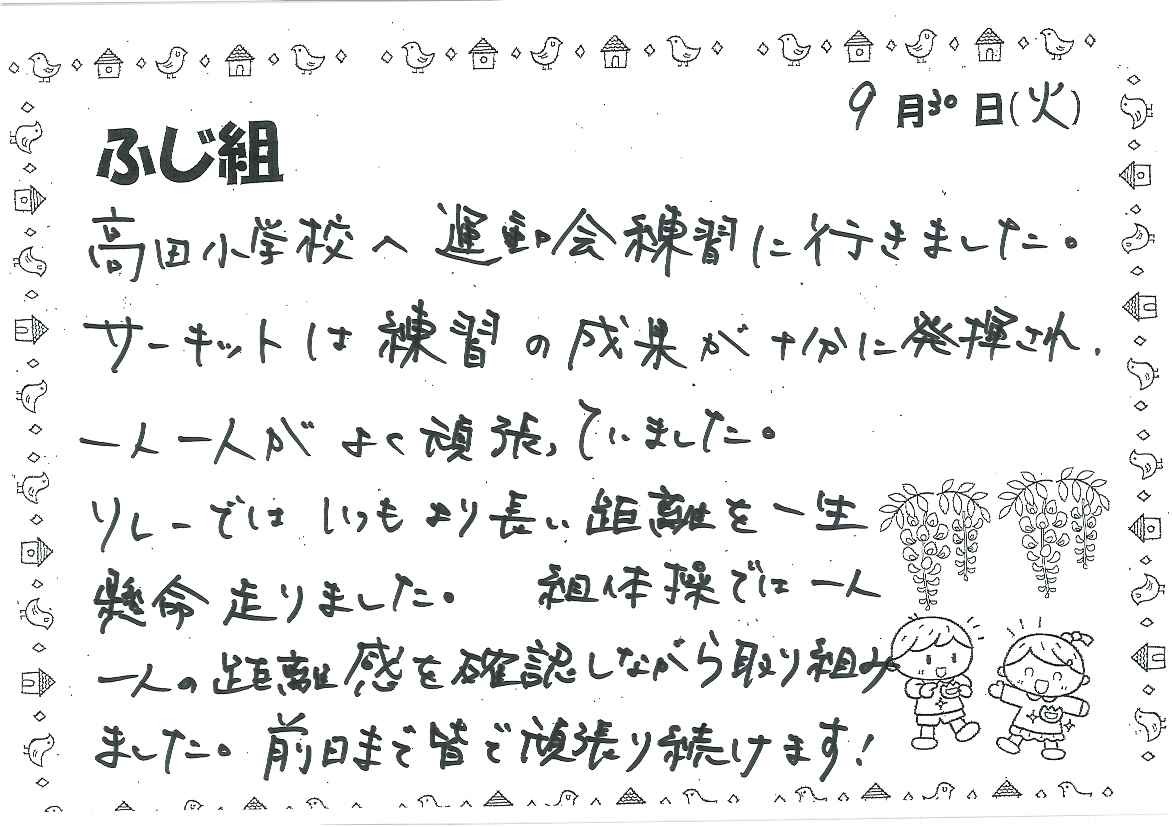 9月30日(火)
ふじ組
高田小学校へ運動会練習に行きました。
サーキットは練習の成果が十分に発揮され、
一人一人がよく頑張っていました。
リレーではいつもより長い距離を一生
懸命走りました。 組体操では一人
一人の距離感を確認しながら取り組み
ました。前日まで皆で頑張り続けます!